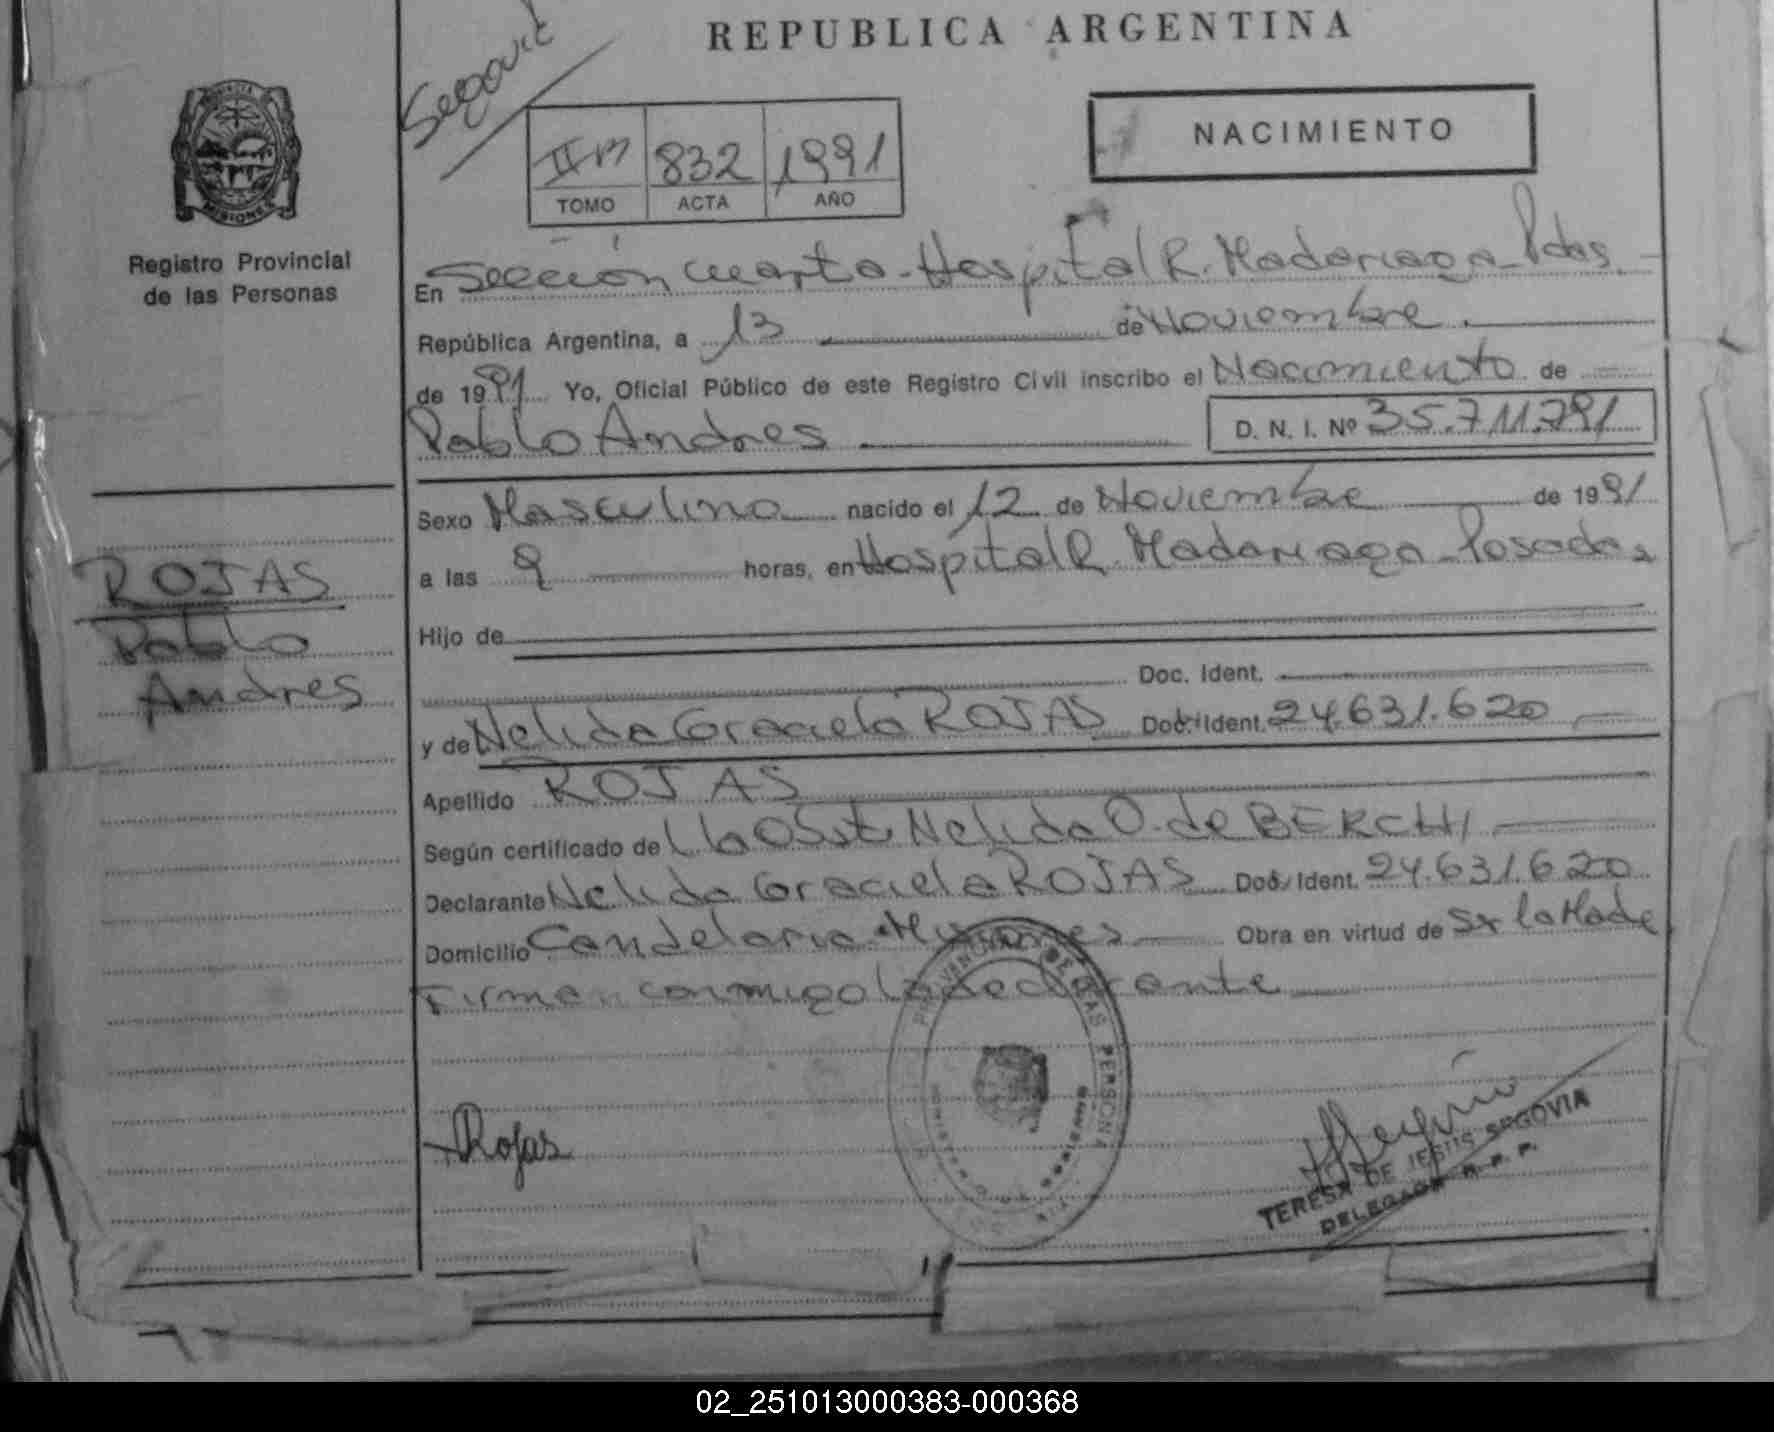 REPUBLICA ARGENTINA
NACIMIENTO
832 1991
TOMO ACTA AÑO
PROVINCIA
MISIONES
Registro Provincial
de las Personas
En Sección cuarta - Hospital R. Madariaga - Pdas.
República Argentina, a 13 de Noviembre
de 1991 Yo, Oficial Público de este Registro Civil inscribo el Nacimiento de
Pablo Andres D. N. I. Nº 35.711.791
Sexo Masculino nacido el 12 de Noviembre de 1991
a las 9 horas, en Hospital R. Madariaga - Posadas
Hijo de
Doc. Ident.
y de Nelida Graciela ROJAS Doc. Ident. 24.631.620
Apellido ROJAS
Según certificado de la Obst. Nelida O. de BERCHI
Declarante Nelida Graciela ROJAS Doc. Ident. 24.631.620
Domicilio Candelaria - Misiones Obra en virtud de Sr la Madre
Firma conmigo la declarante
ROJAS
Pablo
Andres
Rojas
DE LAS PERSONA
TERESA DE JESUS SEGOVIA
DELEGADA R. P. P.
02_251013000383-000368